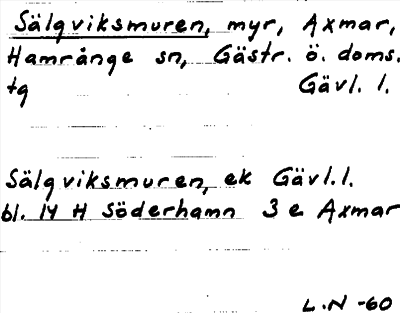 Sälgviksmuren, myr, Axmar,
Hamrånge sn, Gästr. ö. doms.
tg Gävl. l.
Sälgviksmuren, ek Gävl. l.
bl. 14 H Söderhamn 3 e Axmar
L.N -60